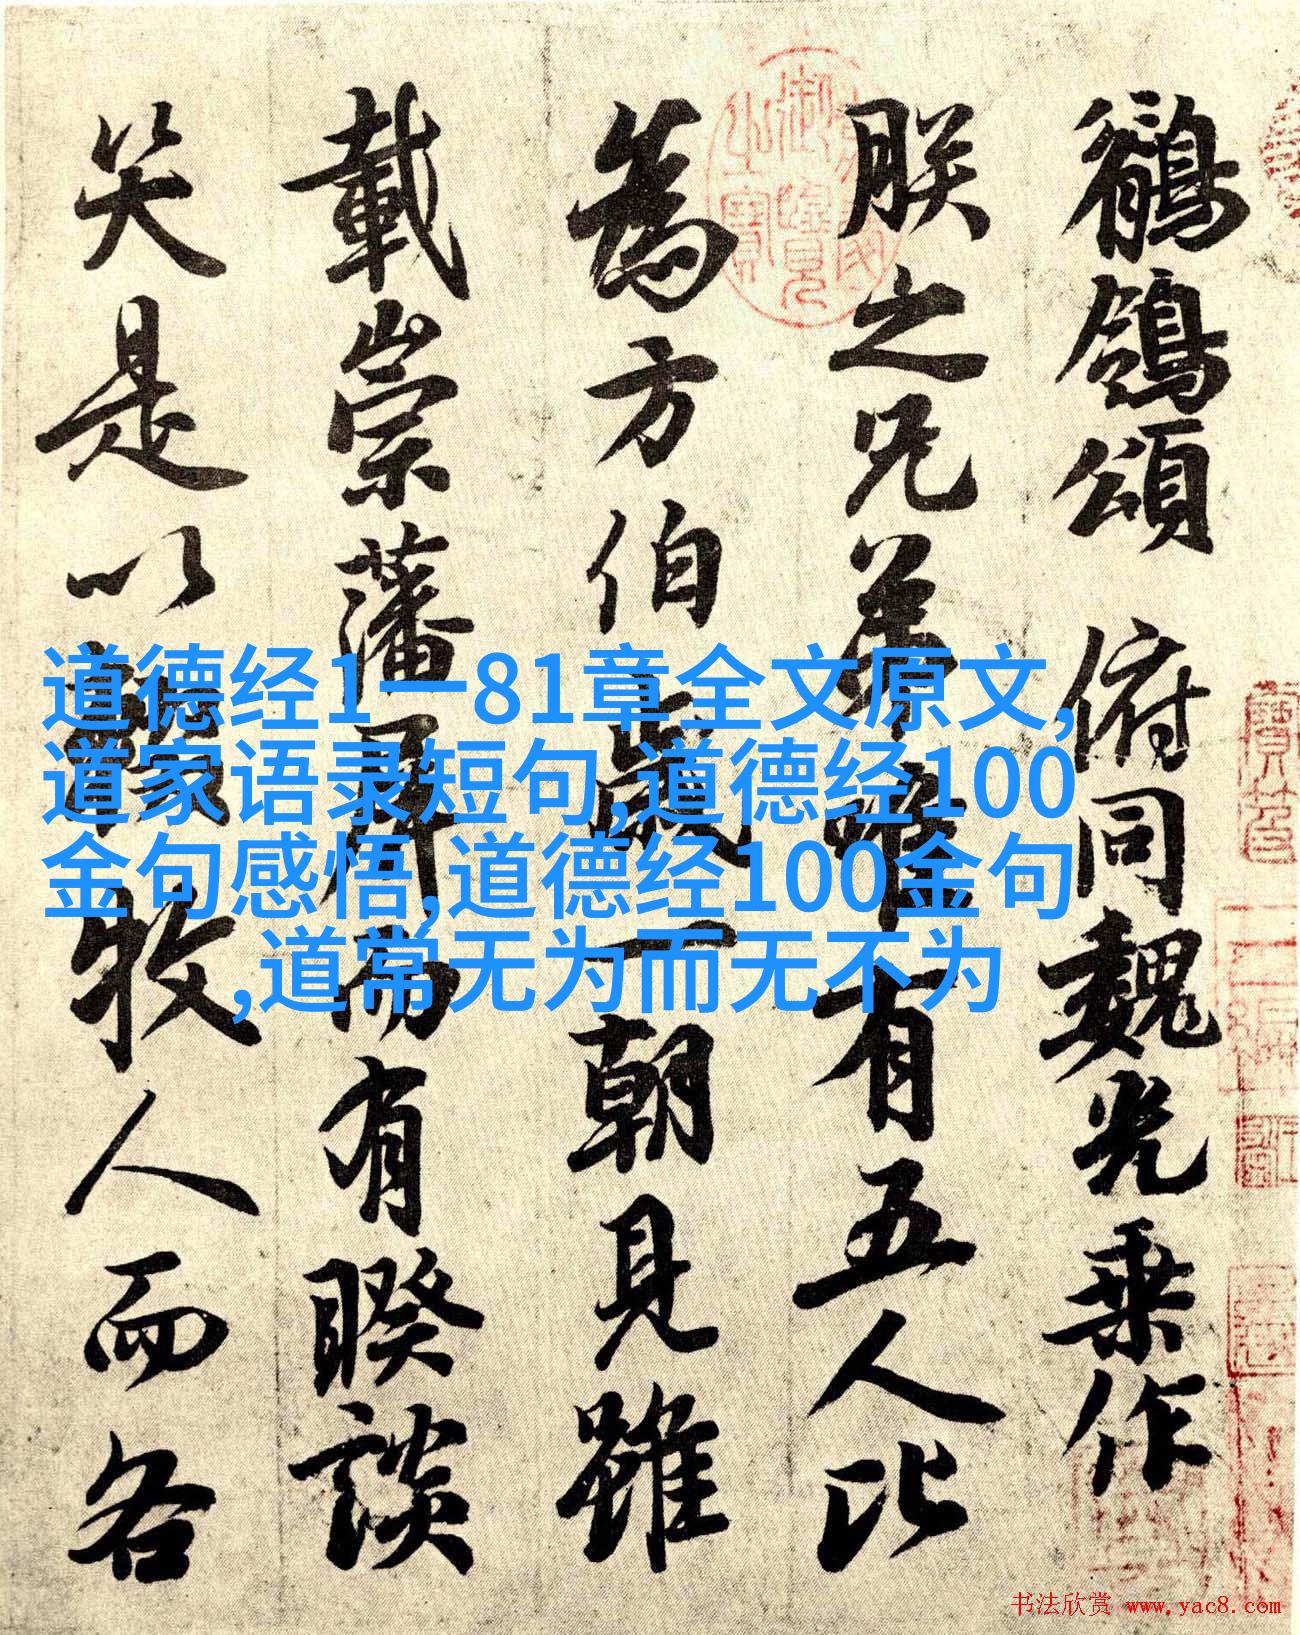 鶺鴒頌 俯同魏光乗作
朕之兄弟唯有五人比
為方伯歲一朝見雖
載崇藩屏而有睽談
笑是以輟牧人而各
道德经1一81章全文原文,
道家语录短句,道德经100
金句感悟,道德经100金句
,道常无为而无不为
书法欣赏 www.yac8.com